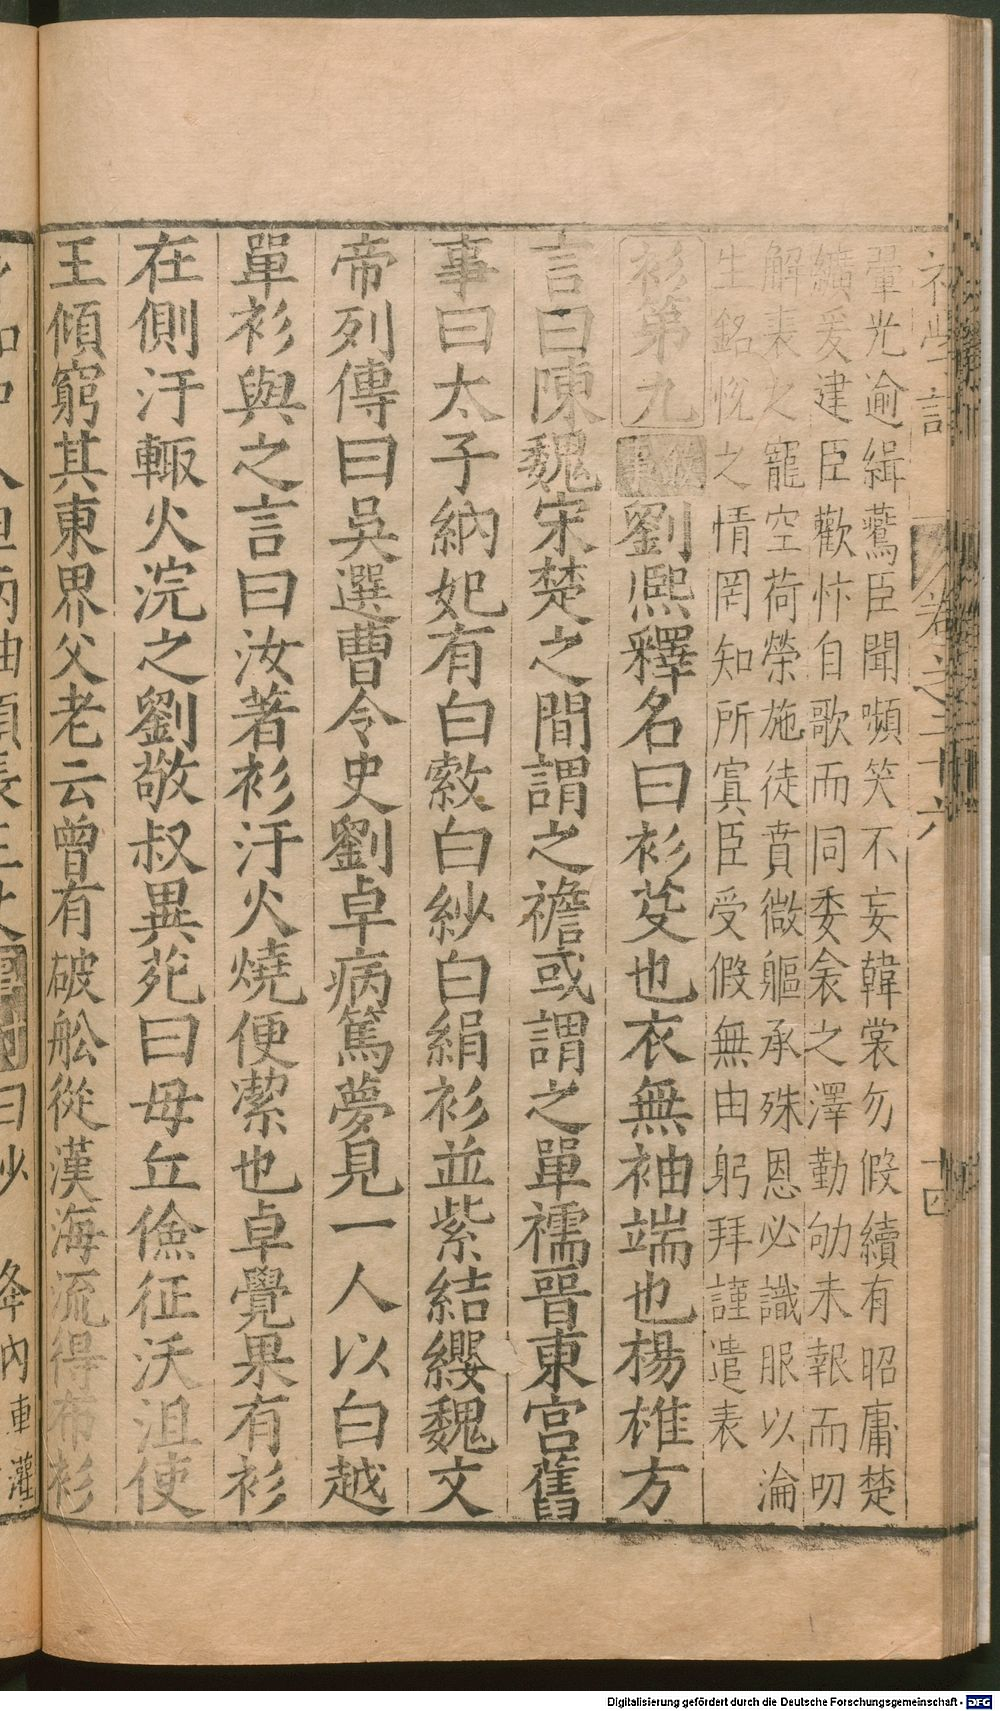 初學記 卷之二十六 十四
翬光逾緝鷰臣聞嚬笑不妄韓裳勿假續有昭庸楚
纊爰建臣歡忭自歌而同委衾之澤勤劬未報而叨
解衣之寵空荷榮施徒賁微軀承殊恩必識服以淪
生銘悅之情罔知所寘臣受假無由躬拜謹遣表
衫第九 劉熙釋名曰衫芟也衣無袖端也楊雄方
言曰陳魏宋楚之間謂之襜或謂之單襦晉東宮舊
事曰太子納妃有白縠白紗白絹衫並紫結纓魏文
帝列傳曰吳選曹令史劉卓病篤夢見一人以白越
單衫與之言曰汝著衫汙火燒便潔也卓覺果有衫
在側汙輙火浣之劉敬叔異苑曰毋丘儉征沃沮使
王傾窮其東界父老云曾有破舩從漢海流得布衫
Digitalisierung gefördert durch die Deutsche Forschungsgemeinschaft - DFG